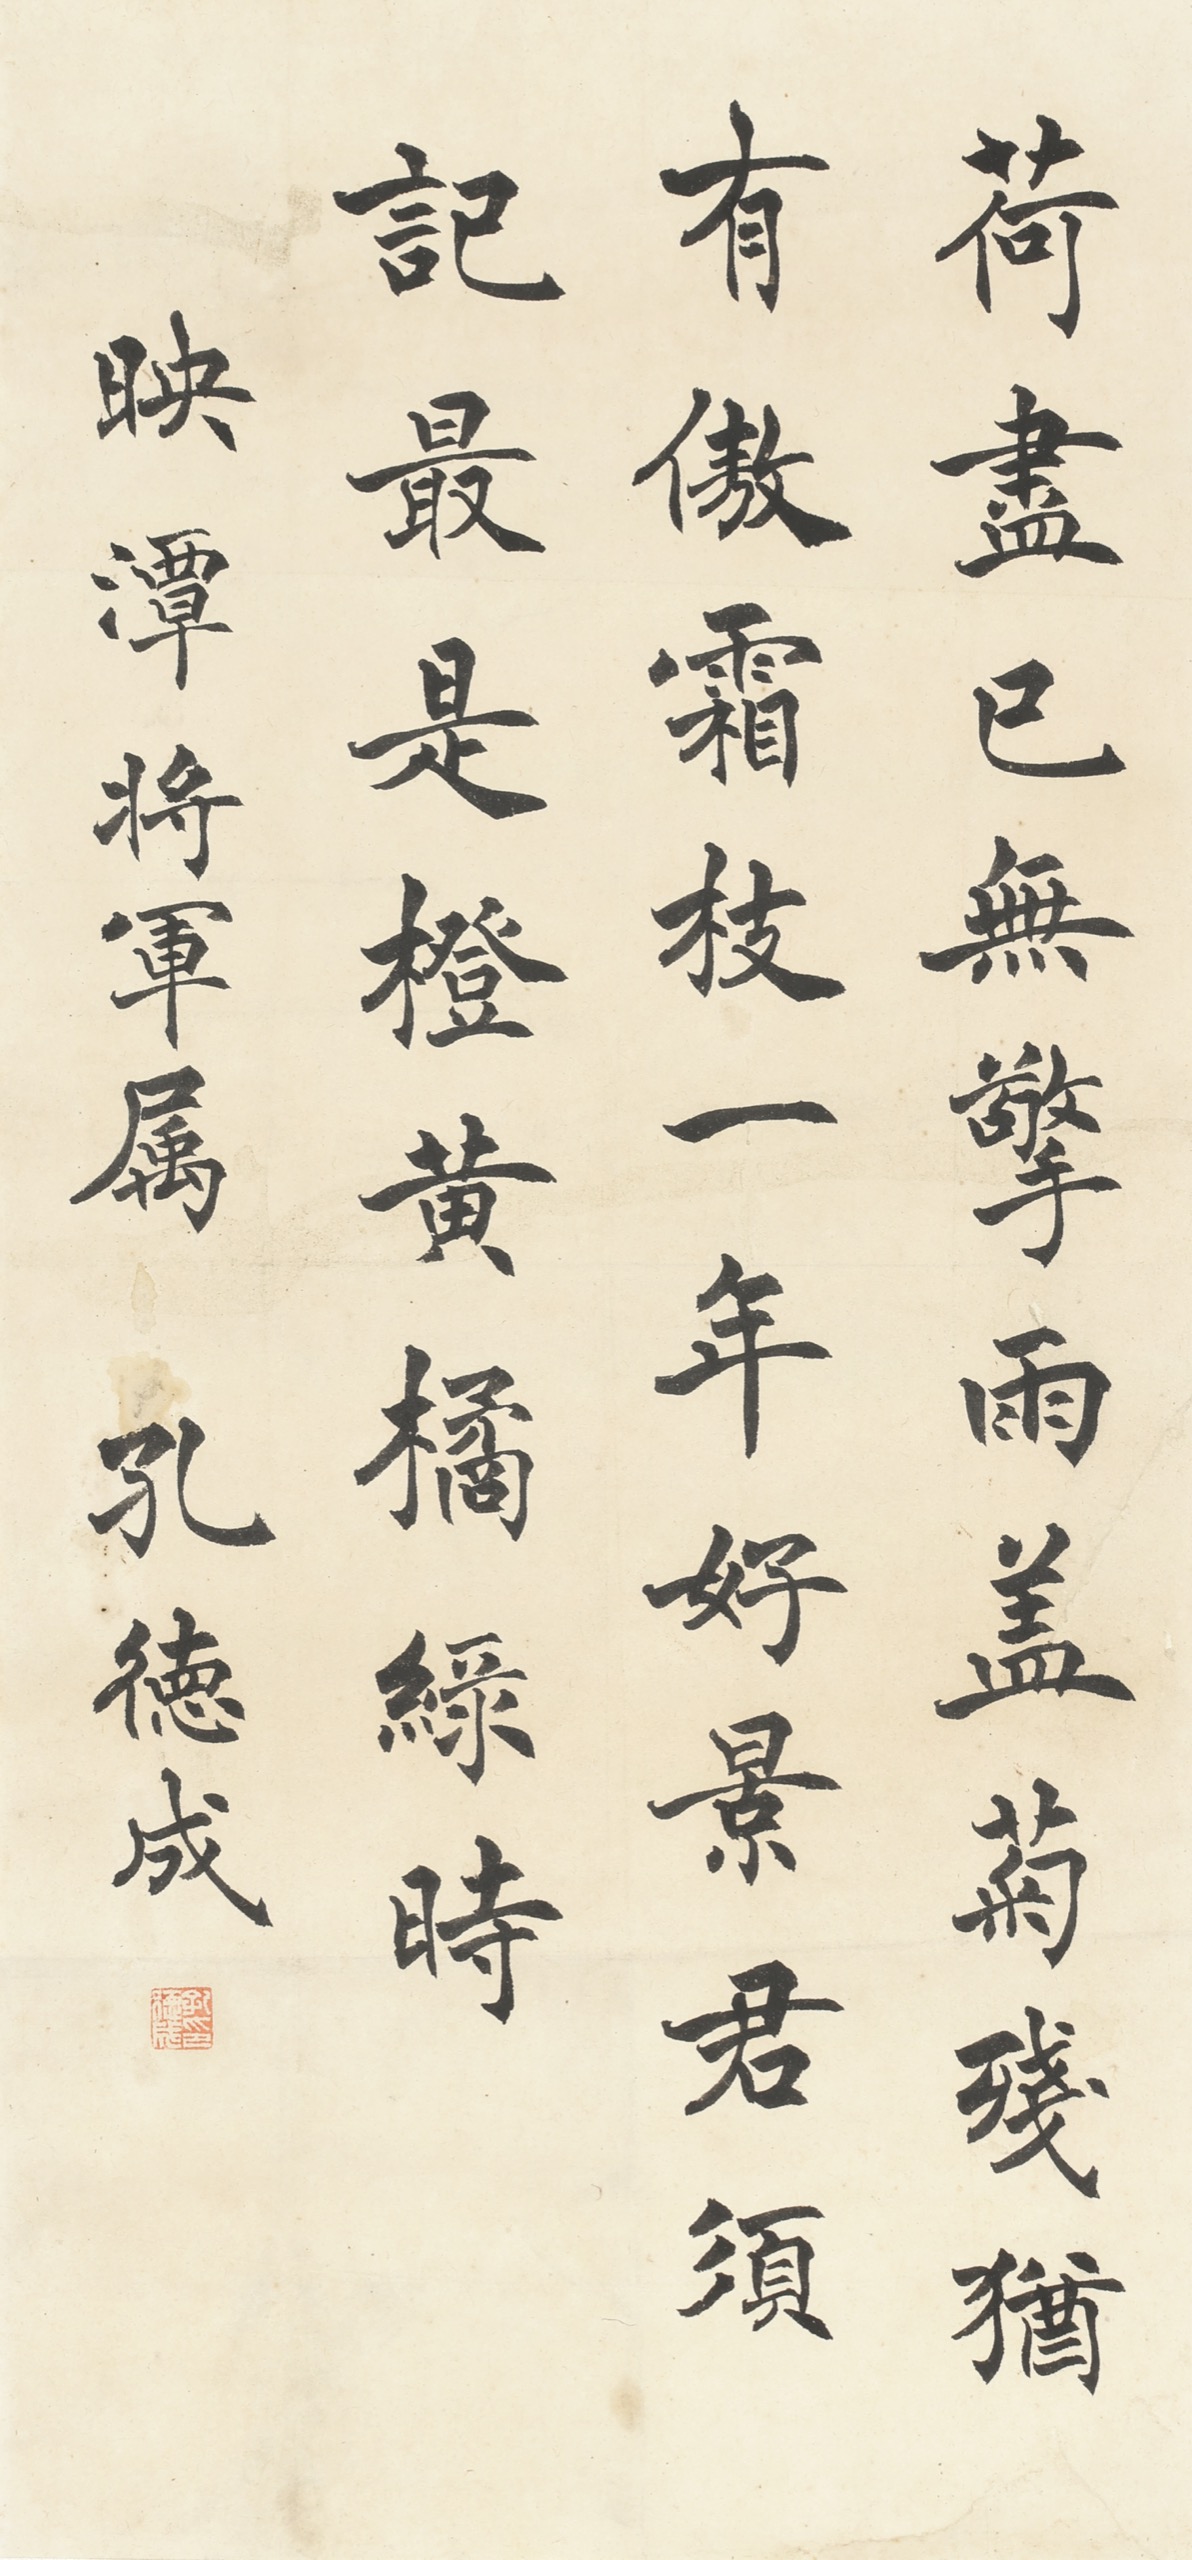 荷盡已無擎雨盖菊殘猶
有傲霜枝一年好景君須
記最是橙黄橘緑時
映潭將軍属 孔德成
孔德成印